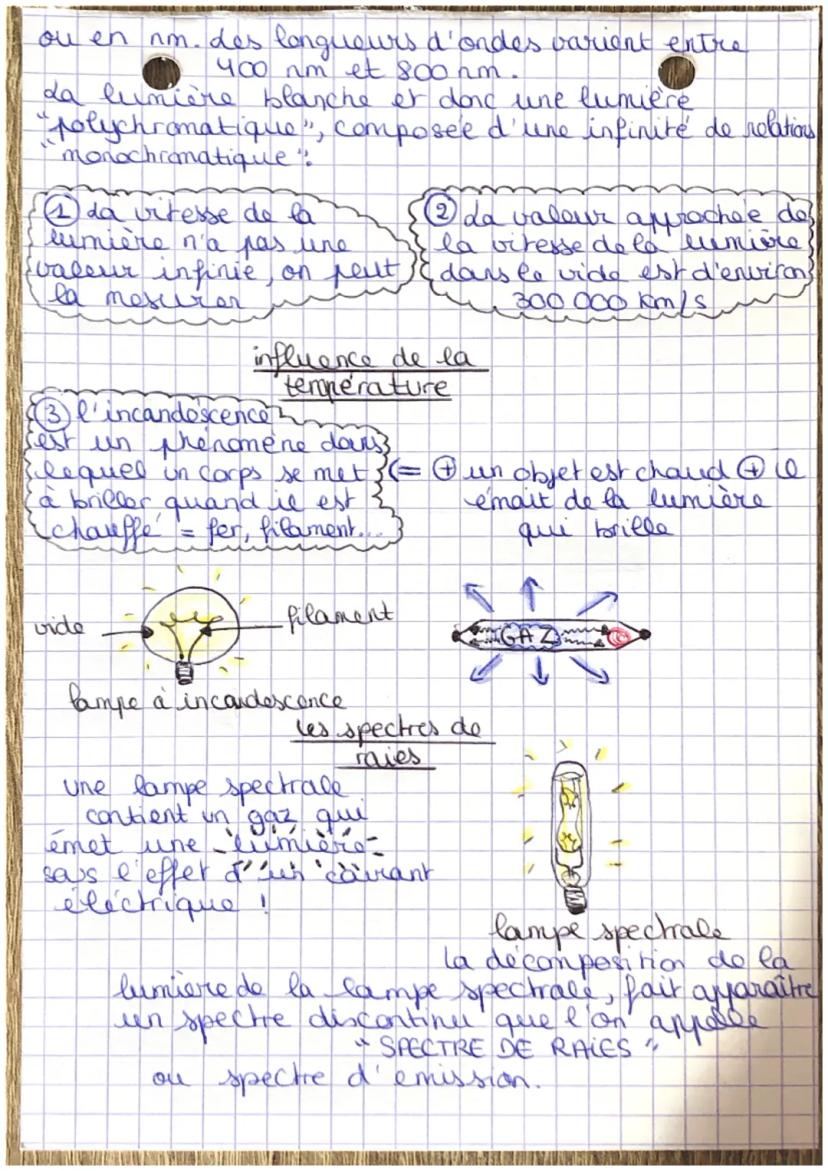 ou en nm. des longueurs d'ondes varient entre
400 nm et 800 nm.
La lumière blanche et donc une lumière
"polychromatique", composée d'une infinité de relations
"monochromatique".
① La vitesse de la
lumière n'a pas une
valeur infinie, on peut
la mesurer
② La valeur approchée de
la vitesse de la lumière
dans le vide est d'environ
300 000 km/s
influence de la
température
③ l'incandescence
est un phénomène dans
lequel un corps se met
à briller quand il est
chauffé = fer, filament...
(= ⊕ un objet est chaud ⊕ il
émait de la lumière
qui brille
vide
filament
GAZ
lampe à incandescence
les spectres de
raies
une lampe spectrale
contient un gaz qui
émet une lumière
sous l'effet d'un courant
éléctrique !
lampe spectrale
la décomposition de la
lumiere de la lampe spectrale, fait apparaître
un spectre discontinu que l'on appelle
"SPECTRE DE RAIES"
ou spectre d'émission.